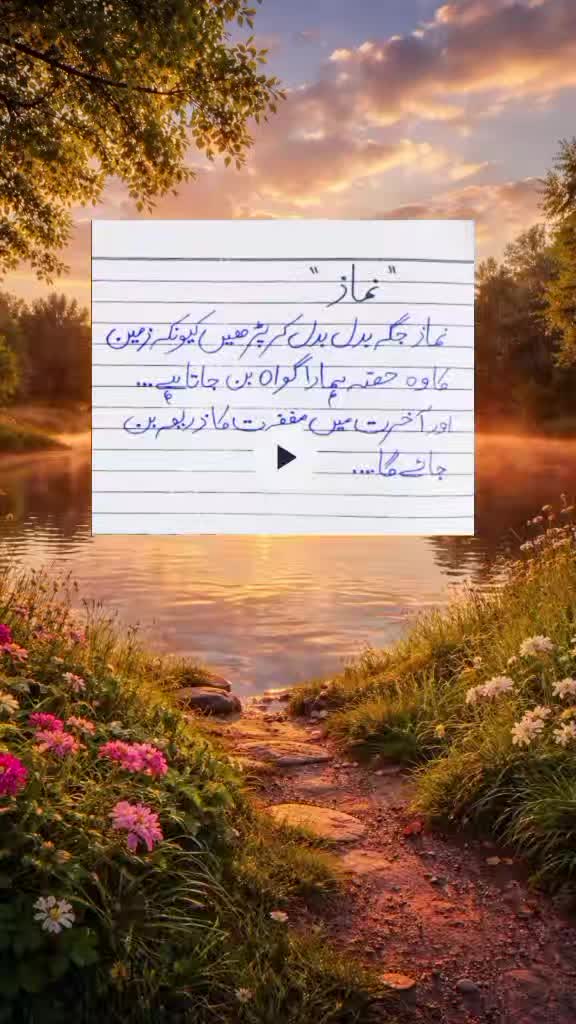 "نماز"
نماز جگہ بدل بدل کر پڑھیں کیونکہ زمین
کا وہ حصہ ہمارا گواہ بن جاتا ہے...
اور آخرت میں مغفرت کا ذریعہ بن
جائے گا....